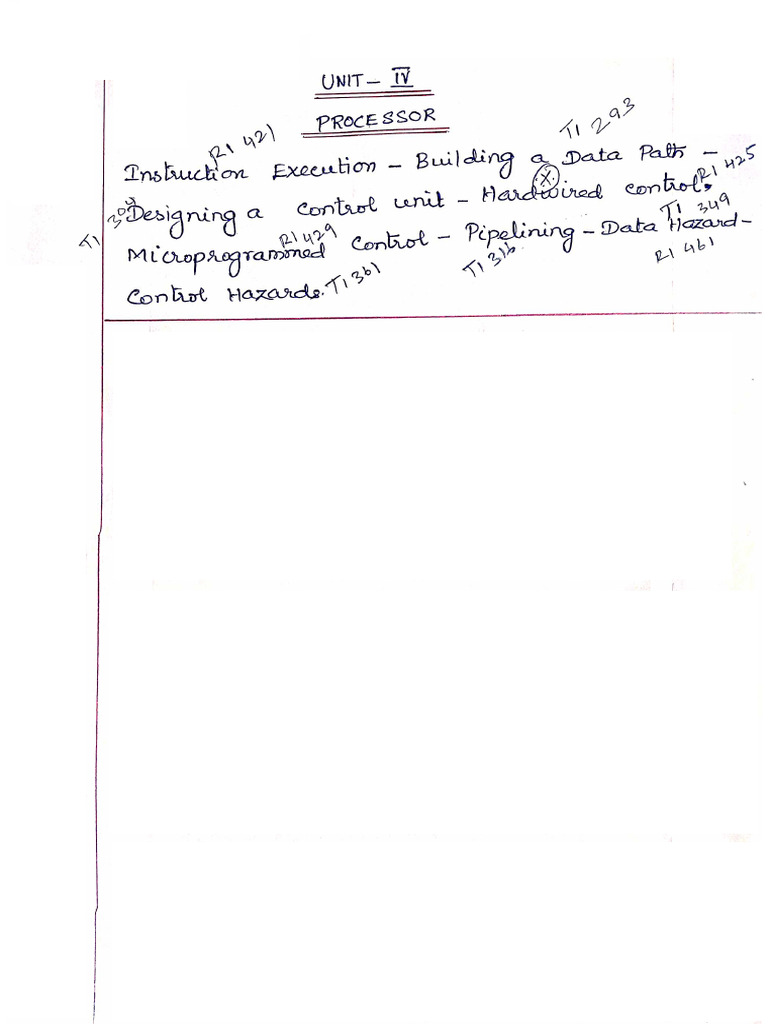 UNIT – IV
PROCESSOR
R1 421
T1 293
Instruction Execution – Building a Data Path –
R1 425
T1 304
Designing a control unit – Hardwired control.
R1 429
T1 349
Microprogrammed Control – Pipelining – Data Hazard –
T1 316
R1 461
Control Hazards. T1 361